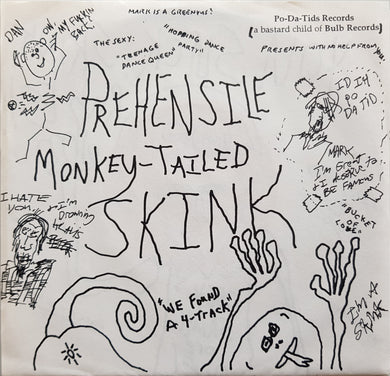 MARK IS A GREENYUS!
Po-Da-Tids Records
[a bastard child of Bulb Records]
DAN
OW,
MY FUCKIN
BACK!
THE SEXY:
"TEENAGE
DANCE QUEEN"
"HOPPING DANCE
PARTY!"
PRESENTS WITH NO HELP FROM
PREHENSILE
MONKEY-TAILED
SKINK
I DIH
PO
DA TID
MARK
I'M
& I DESERVE
BE FAMOUS
I HATE
YOU
& I'M
DRAWING
"BUCKET
OF
"WE FOUND
A 4-TRACK"
I'M A
SKINK